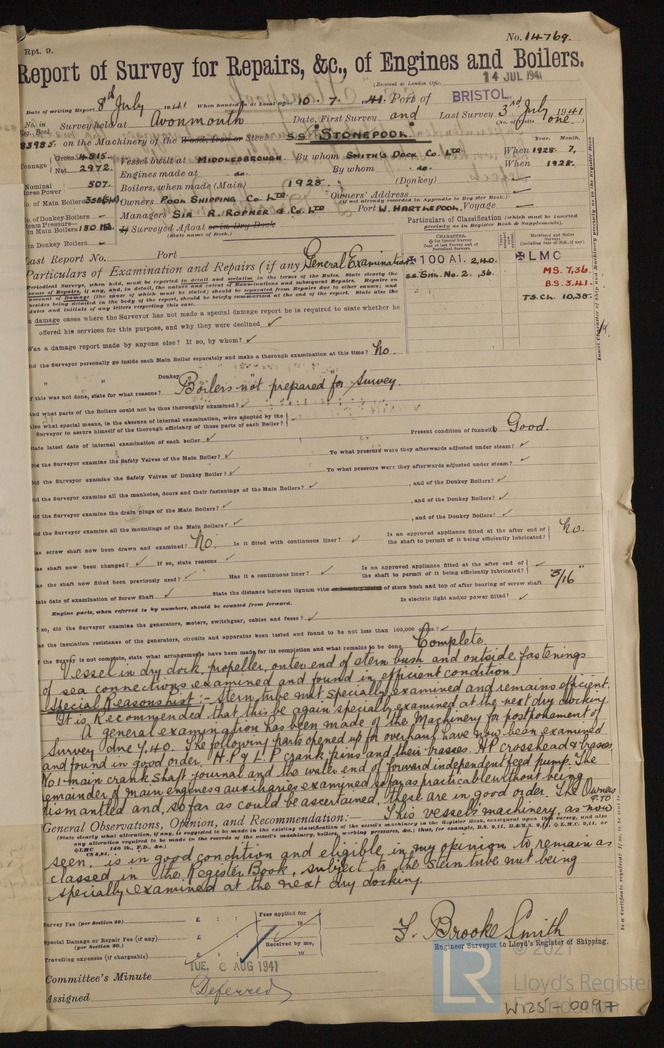 Rpt. 9.
No. 14769.
Report of Survey for Repairs, &c., of Engines and Boilers.
(Received at London Office
14 JUL 1941
Date of writing Report 8th July 1941 When handed in at Local Office 10. 7. 41. Port of BRISTOL.
No. in Reg. Book. Survey held at Avonmouth Date, First Survey and Last Survey 3rd July 1941
83985. on the Machinery of the Wood, Iron or Steel S.S. "STONEPOOL" (No. of Visits one)
Tonnage Gross 4815 Net 2972. Vessel built at MIDDLESBROUGH. By whom SMITH'S DOCK Co. LTD When 1928. 7,
Engines made at do. By whom do. When 1928.
Nominal Horse Power 507. Boilers, when made (Main) 1928. (Donkey)
No. of Main Boilers Owners POOL SHIPPING Co. LTD Owners' Address
(if not already recorded in Appendix to Register Book.)
No. of Donkey Boilers Managers SIR R. ROPNER & Co. LTD Port W. HARTLEPOOL Voyage
Steam Pressure in Main Boilers 180 lb Surveyed Afloat or in Dry Dock
in Donkey Boilers (State name of Dock.)
Particulars of Classification (which must be inserted precisely as in Register Book & Supplements).
Last Report No. Port
✠ 100 A1. 2,40.
ss. Sm. No. 2. ,36.
✠ LMC
MS. 7,36.
B.S. 3.41.
T.S. CL. 10,38.
Particulars of Examination and Repairs (if any) General Examination
In damage cases where the Surveyor has not made a special damage report he is required to state whether he
offered his services for this purpose, and why they were declined ✓
Was a damage report made by anyone else? If so, by whom? ✓
Did the Surveyor personally go inside each Main Boiler separately and make a thorough examination at this time? No.
" " Donkey " "
If this was not done, state for what reasons? Boilers not prepared for survey.
And what parts of the Boilers could not be thoroughly examined?
Also what special means, in the absence of internal examination, were adopted by the
Surveyor to assure himself of the thorough efficiency of those parts of each Boiler?
State latest date of internal examination of each boiler ✓ Present condition of funnel Good.
Did the Surveyor examine the Safety Valves of the Main Boiler? ✓ To what pressure were they afterwards adjusted under steam? ✓
Did the Surveyor examine the Safety Valves of Donkey Boiler? ✓ To what pressure were they afterwards adjusted under steam? ✓
Did the Surveyor examine all the manholes, doors and their fastenings of the Main Boilers? ✓ , and of the Donkey Boilers? ✓
Did the Surveyor examine the drain plugs of the Main Boilers? ✓ , and of the Donkey Boilers? ✓
Did the Surveyor examine all the mountings of the Main Boilers? ✓ , and of the Donkey Boilers? ✓
Has screw shaft now been drawn and examined? No. Is it fitted with continuous liner? ✓ Is an approved appliance fitted at the after end of the shaft to permit of it being efficiently lubricated? No.
Has shaft now been changed? ✓ If so, state reasons ✓
Has the shaft now fitted been previously used? ✓ Has it a continuous liner? ✓ Is an approved appliance fitted at the after end of the shaft to permit of it being efficiently lubricated? ✓
State date of examination of Screw Shaft ✓ State the distance between lignum vitæ of stern bush and top of after bearing of screw shaft 3/16"
Engine parts, when referred to by numbers, should be counted from forward. Is electric light and/or power fitted? ✓
If so, did the Surveyor examine the generators, motors, switchgear, cables and fuses? ✓
Has the insulation resistance of the generators, circuits and apparatus been tested and found to be not less than 100,000 ohms? ✓
If the Survey is not complete, state what arrangements have been made for its completion and what remains to be done Complete.
Vessel in dry dock, propeller, outer end of stern bush and outside fastenings
of sea connections examined and found in efficient condition.
Special Reasons List :- Stern tube nut specially examined and remains efficient.
It is Recommended that this be again specially examined at the next dry docking.
A general examination has been made of the Machinery for postponement of
Survey due 7.40. The following parts opened up for overhaul have now been examined
and found in good order. H.P. & L.P crank pins and their brasses. HP crosshead & brasses,
No 1 main crank shaft journal and the water end of forward independent feed pump. The
remainder of main engines & auxiliaries examined so far as practicable without being
dismantled and, so far as could be ascertained, these are in good order. The Owners
P.TO
General Observations, Opinion, and Recommendation:— This vessel's machinery, as now
seen, is in good condition and eligible in my opinion to remain as
classed in the Register Book, subject to the stern tube nut being
specially examined at the next dry docking.
Survey Fee (per Section 29) £ : : Fees applied for 19
Special Damage or Repair Fee (if any) (per Section 29.) £ : :
Travelling expenses (if chargeable) £ : : Received by me, 19
F. Brooke Smith
Engineer Surveyor to Lloyd's Register of Shipping.
Committee's Minute TUE. 6 AUG 1941
Assigned Deferred
© 2021
LR
Lloyd's Register
Foundation
W125-0097